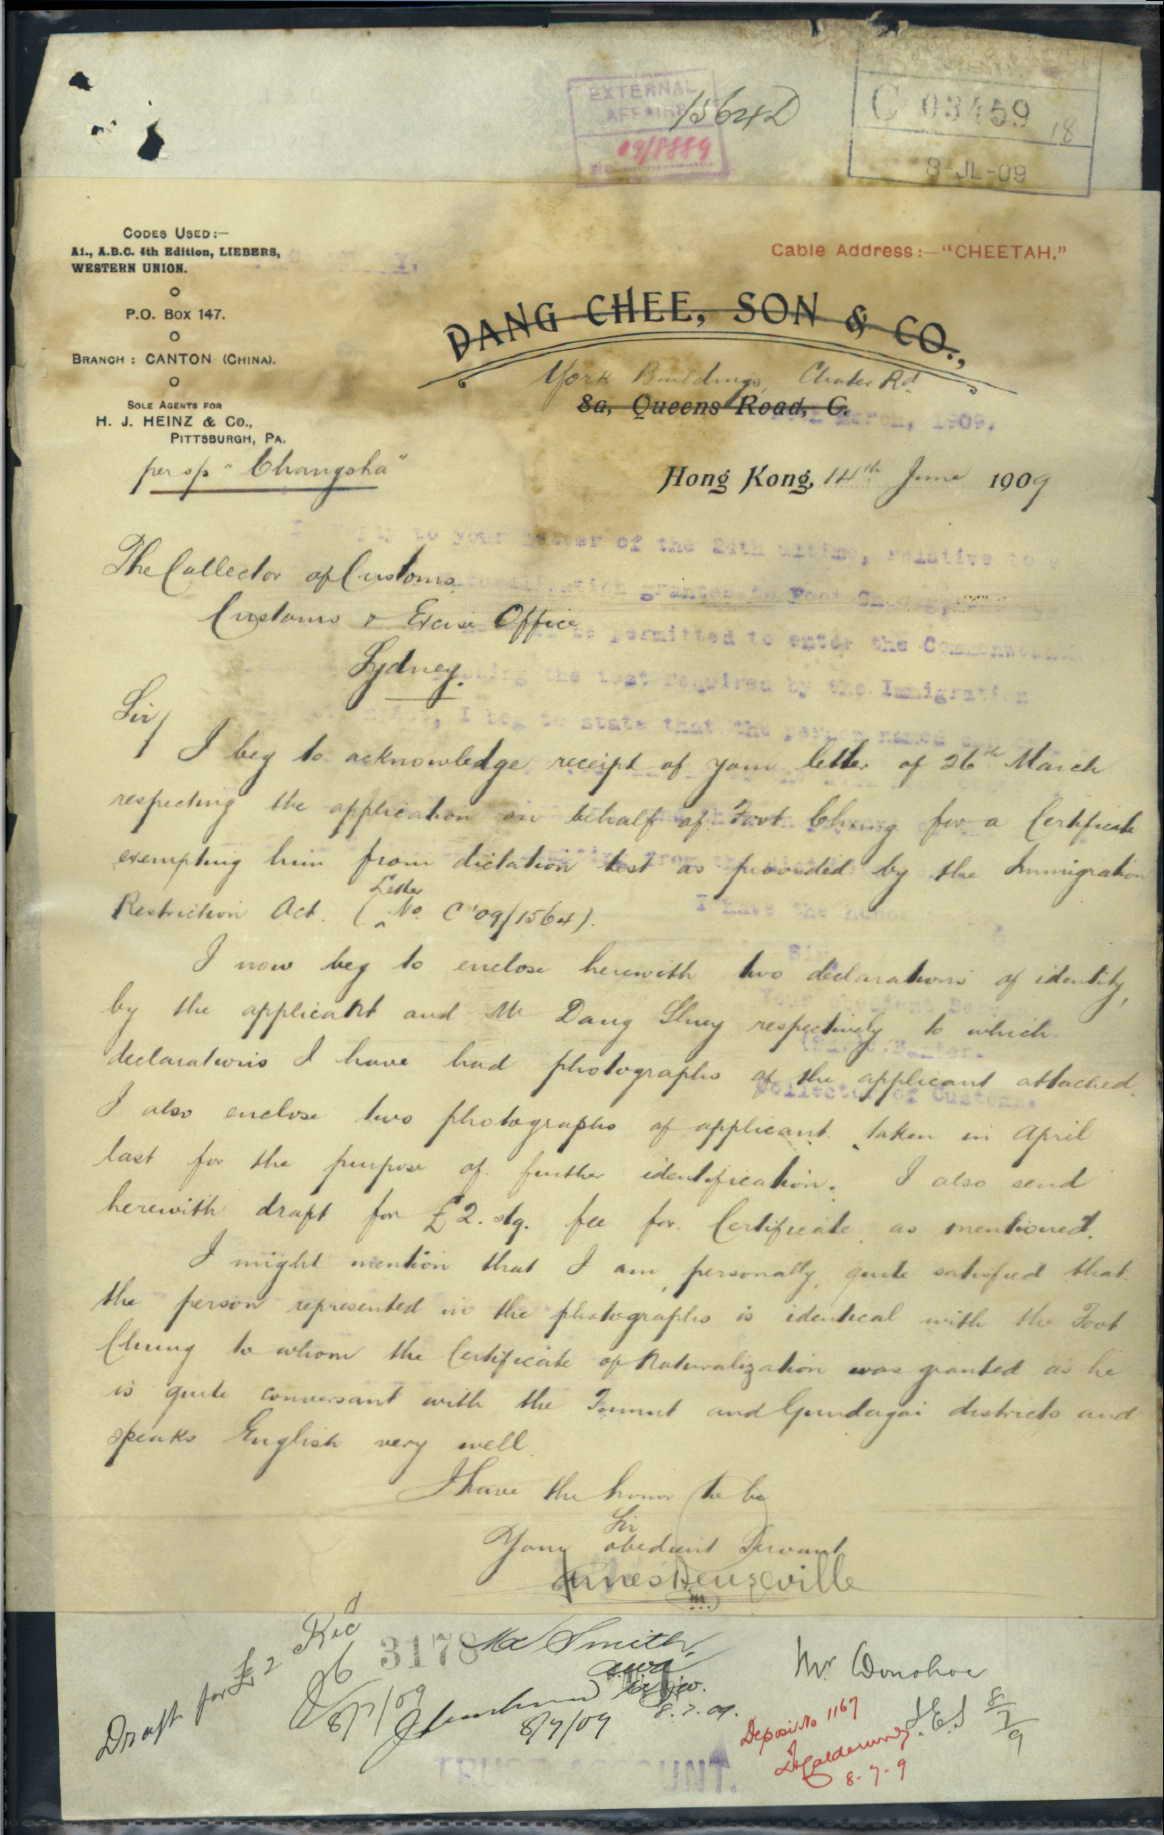 EXTERNAL
AFFAIRS
09/8889
15642D
C 03459
18
8-JL-09
CODES USED:—
A1., A.B.C. 4th Edition, LIEBERS,
WESTERN UNION.
P.O. BOX 147.
BRANCH: CANTON (CHINA).
SOLE AGENTS FOR
H. J. HEINZ & CO.,
PITTSBURGH, PA.
Cable Address:—"CHEETAH."
DANG CHEE, SON & CO.,
York Buildings, Chater Rd
8a, Queens Road, C.
March, 1909.
per s/s "Changsha"
Hong Kong, 14th June 1909
The Collector of Customs
Customs & Excise Office
Sydney.
Sir/
I beg to acknowledge receipt of your letter of 26th March
respecting the application on behalf of Foot Chung for a Certificate
exempting him from dictation test as provided by the Immigration
Restriction Act. (Letter No. C'09/1564).
I now beg to enclose herewith two declarations of identity,
by the applicant and Mr Dang Shuey respectively to which
declarations I have had photographs of the applicant attached.
I also enclose two photographs of applicant taken in April
last for the purpose of further identification. I also send
herewith draft for £2. stg. fee for Certificate as mentioned.
I might mention that I am personally quite satisfied that
the person represented in the photographs is identical with the Foot
Chung to whom the Certificate of Naturalization was granted as he
is quite conversant with the Tumut and Gundagai districts and
speaks English very well.
I have the honor to be
Sir
Your obedient Servant
Draft for £2
Rec'd
8/7/09
3178
Mr Smith
8/7/09
8.7.09.
Mr Donohoe
J.E.S 8/7/9
Deposit No 1167
8-7-9
TRUST ACCOUNT.